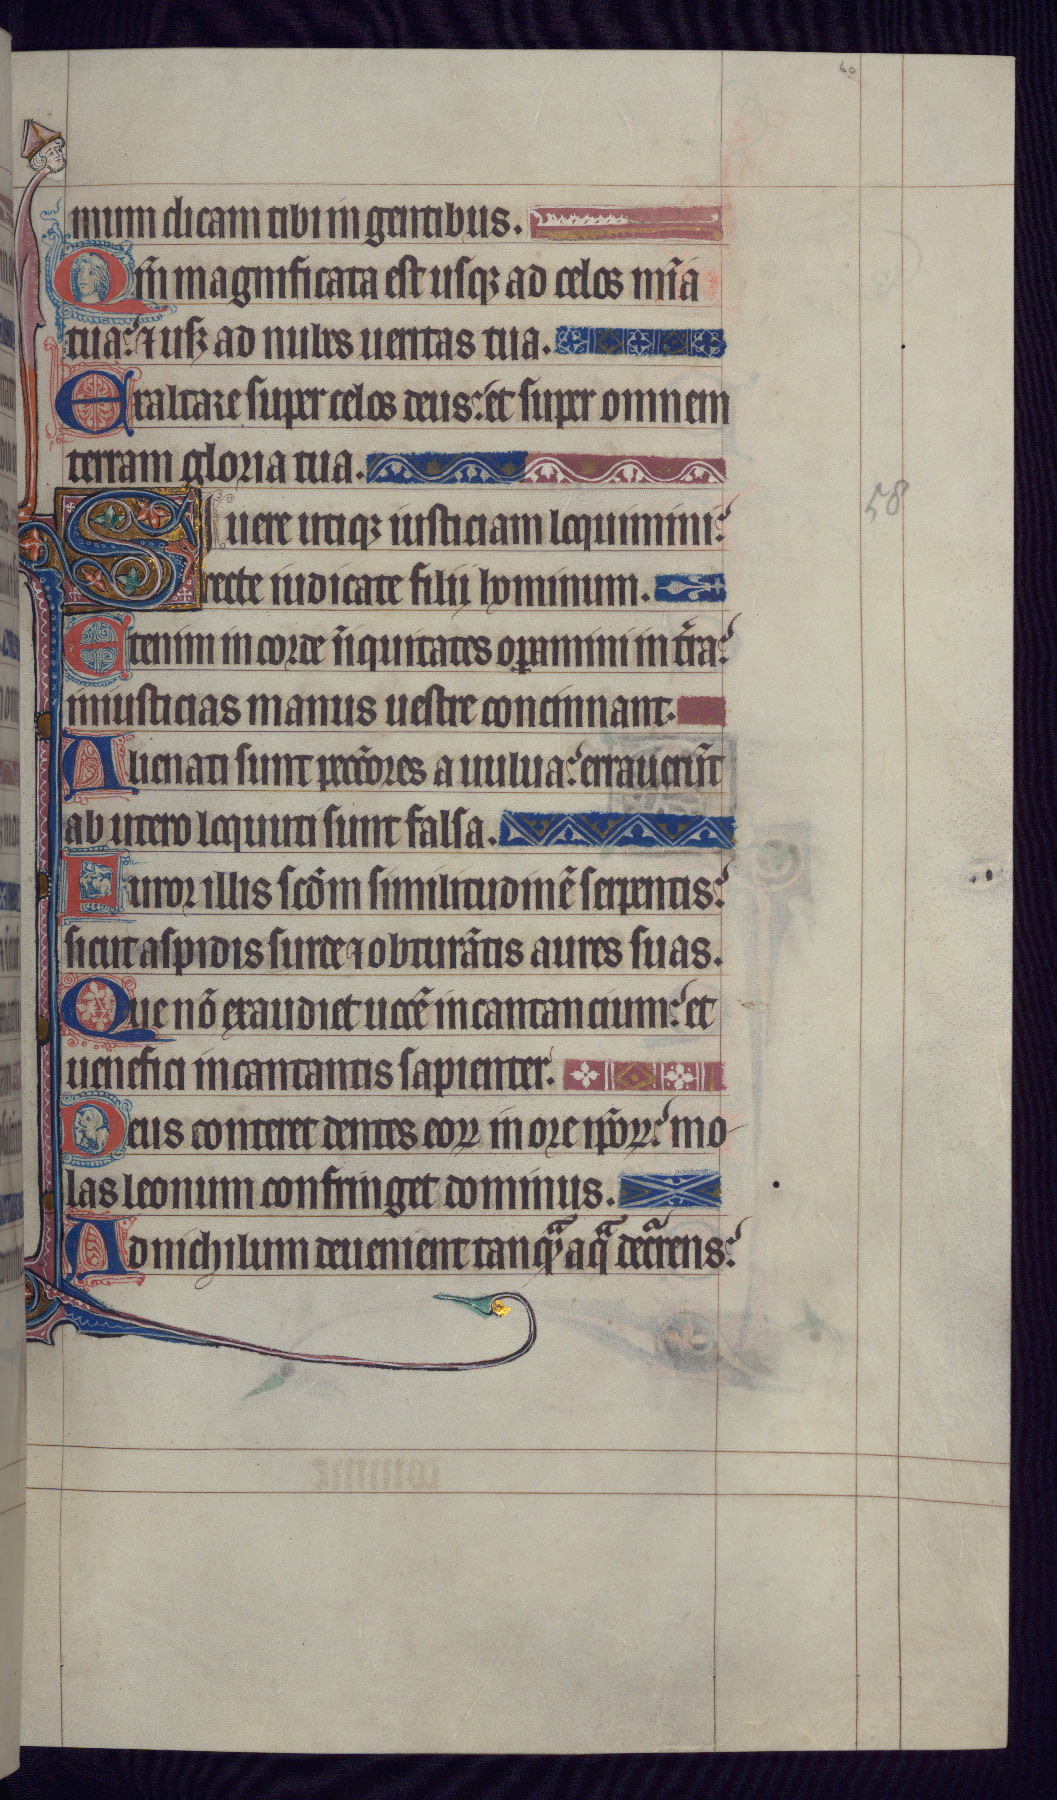 60
mum dicam tibi in gentibus.
Qm̄ magnificata est usqꝫ ad celos mīa
tua: ⁊ usqꝫ ad nubes ueritas tua.
Exaltare super celos deus: et super omnem
terram gloria tua.
Si uere utiqꝫ iusticiam loquimini:
recte iudicate filii hominum.
Etenim in corde īiquitates oꝑamini in t̄ra:
iniusticias manus uestre concinnant.
Alienati sunt peccōres a uulua: errauerūt
ab utero locuti sunt falsa.
Furor illis scd̄m similitudinē serpentis:
sicut aspidis surde ⁊ obturātis aures suas.
Que nō exaudiet uocē incantancium: et
uenefici incantantis sapienter.
Deus conteret dentes eoꝝ in ore ip̄oꝝ: mo
las leonum confringet dominus.
Ad nichilum deuenient tanqᵃ aqᵃ decᵃrens:
58